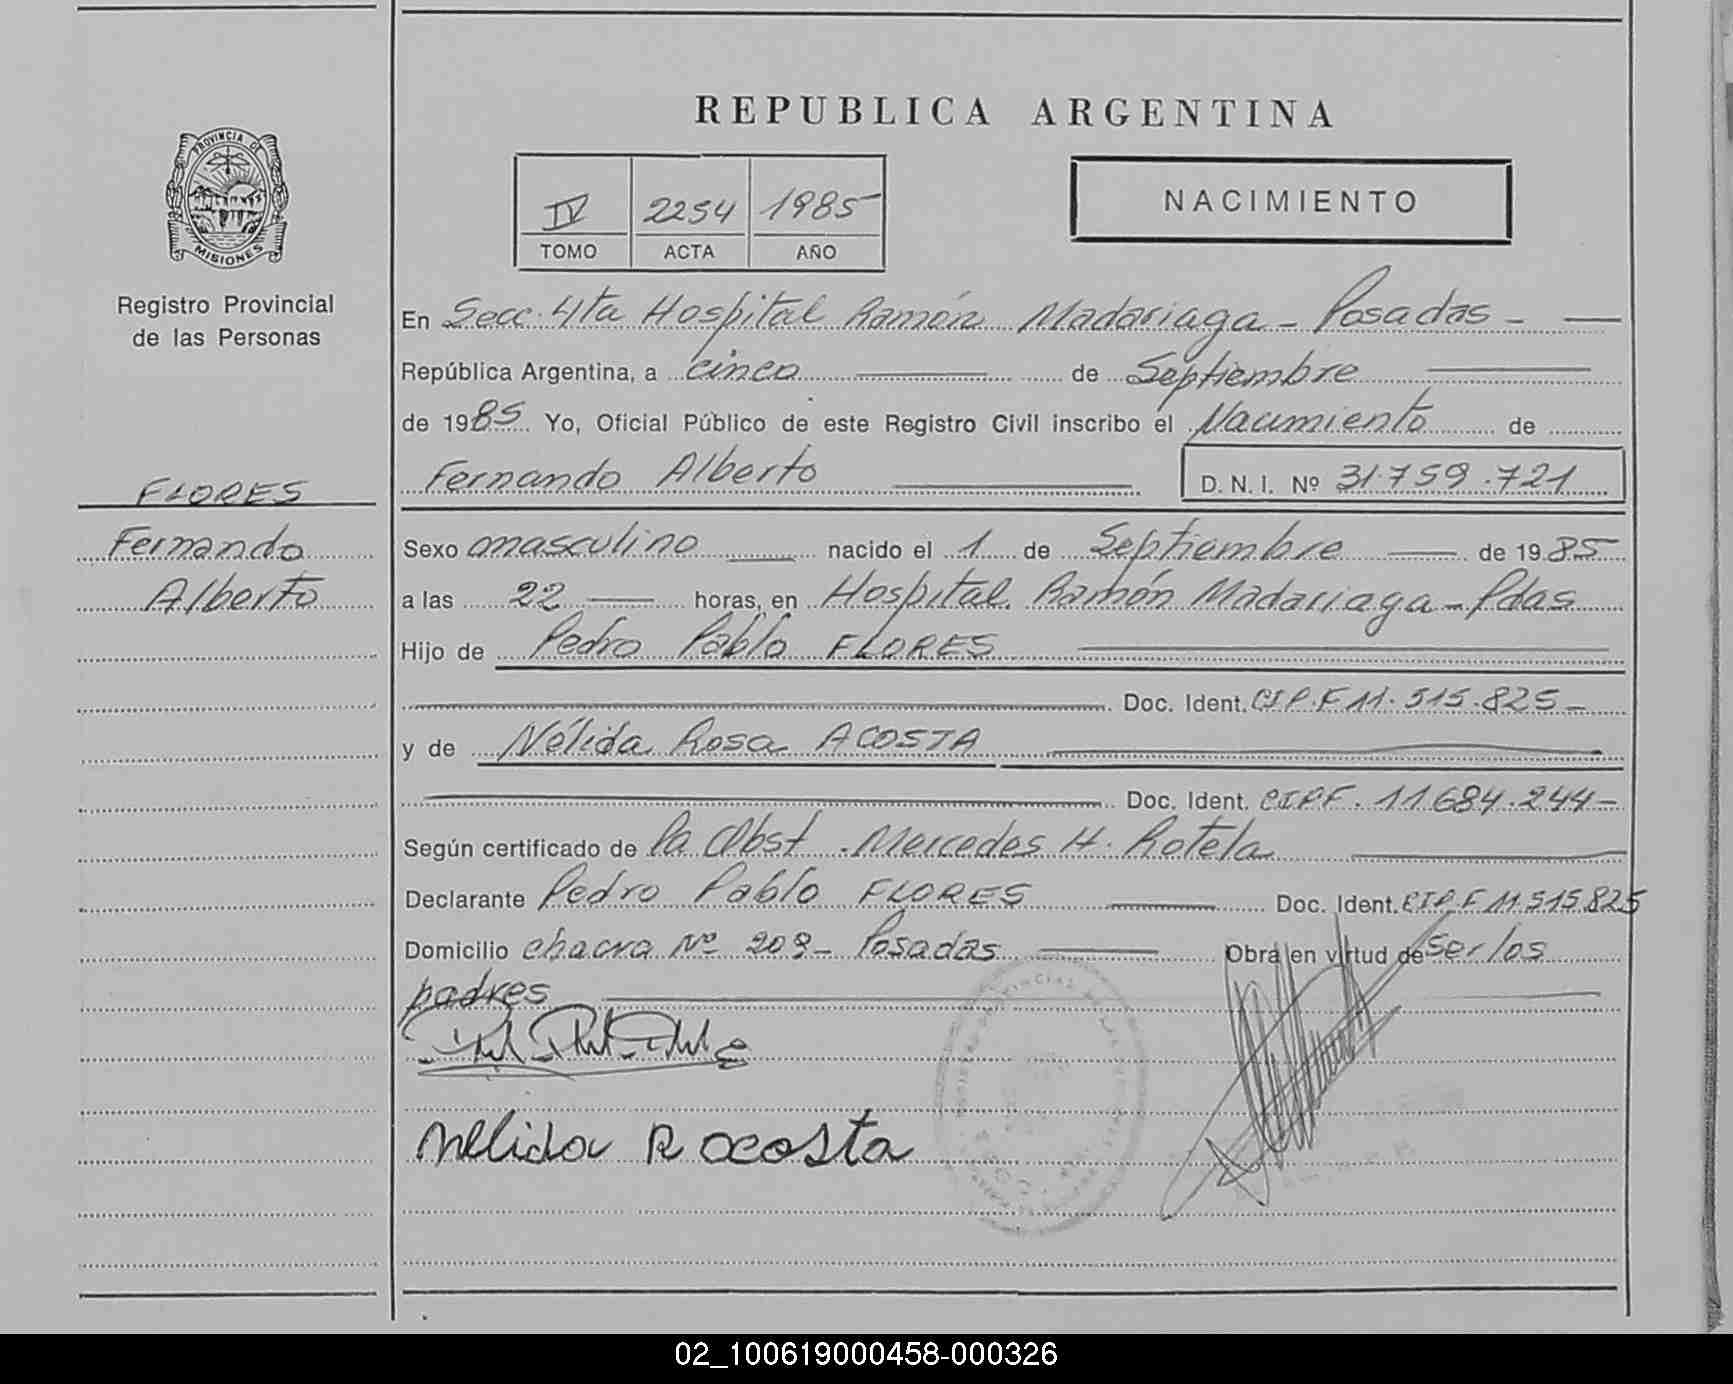 REPUBLICA ARGENTINA
PROVINCIA DE
MISIONES
Registro Provincial
de las Personas
IV 2254 1985
TOMO ACTA AÑO
NACIMIENTO
En Secc. 4ta Hospital Ramón Madariaga - Posadas -
República Argentina, a cinco de Septiembre
de 1985 Yo, Oficial Público de este Registro Civil inscribo el Nacimiento de
Fernando Alberto D. N. I. Nº 31.759.721
FLORES
Fernando
Alberto
Sexo masculino nacido el 1 de Septiembre de 1985
a las 22 horas, en Hospital Ramón Madariaga - Pdas
Hijo de Pedro Pablo FLORES
Doc. Ident. CIPF 11.515.825 -
y de Nélida Rosa ACOSTA
Doc. Ident. CIPF. 11.684.244 -
Según certificado de la Obst. Mercedes H. Rotela
Declarante Pedro Pablo FLORES Doc. Ident. CIPF 11.515.825
Domicilio chacra Nº 209 - Posadas Obra en virtud de ser los
padres
Nelida R acosta
02_100619000458-000326